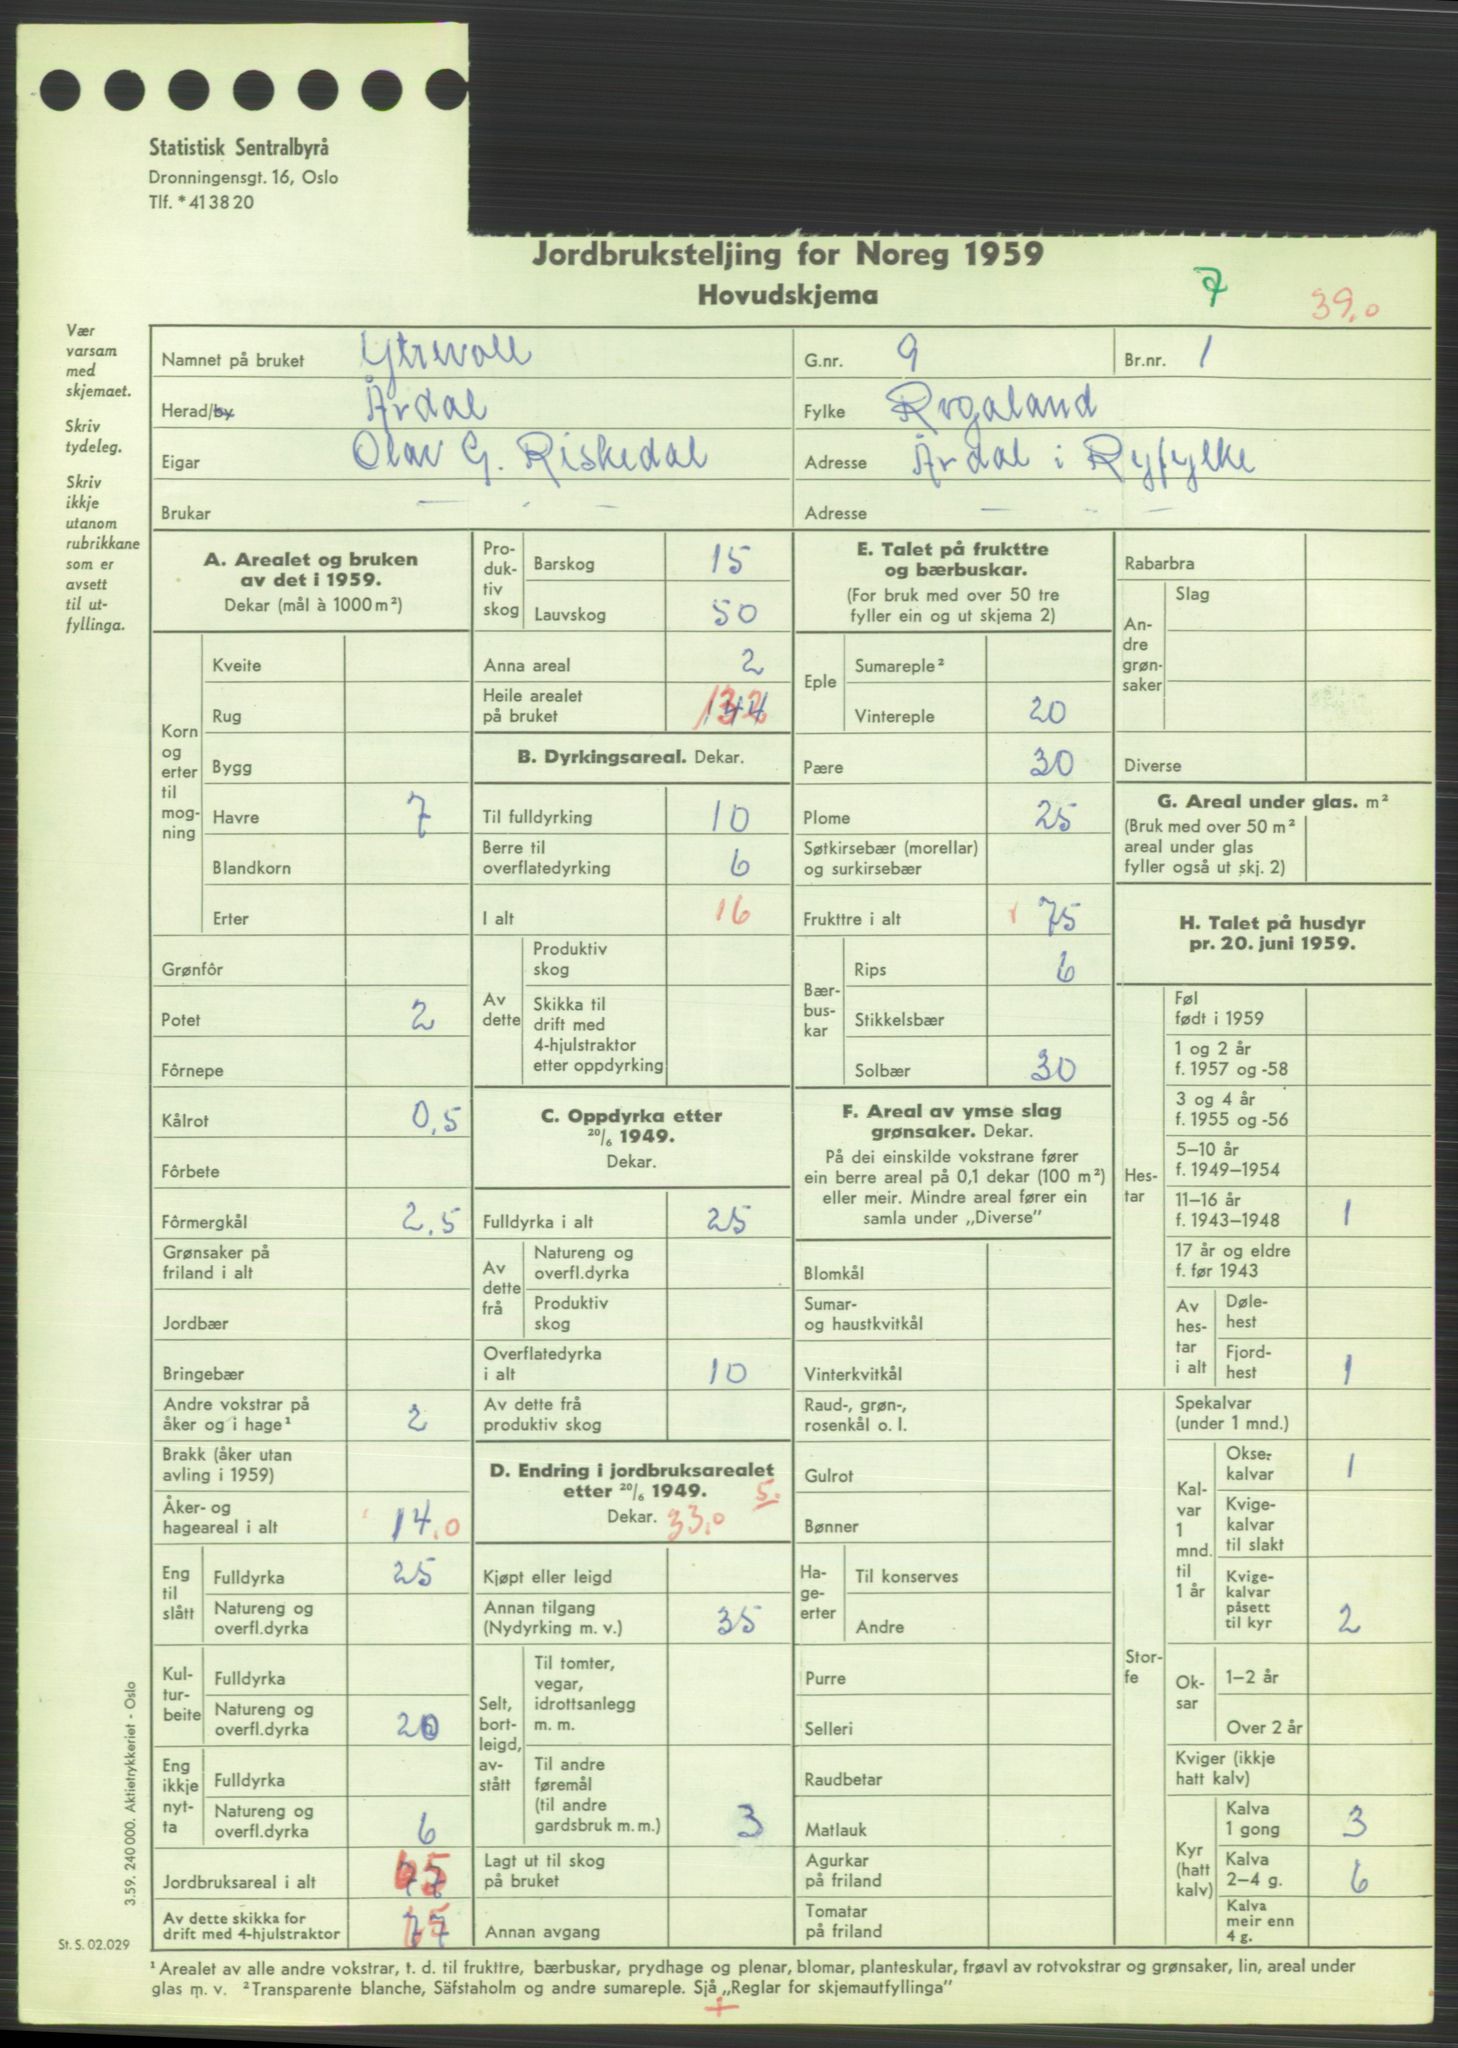 Statistisk Sentralbyrå
Dronningensgt. 16, Oslo
Tlf. * 41 38 20
Jordbruksteljing for Noreg 1959
Hovudskjema
7
39,0
Vær
varsam
med
skjemaet.
Skriv
tydeleg.
Skriv
ikkje
utanom
rubrikkane
som er
avsett
til ut-
fyllinga.
Namnet på bruket Ytrevoll G.nr. 9 Br.nr. 1
Herad/by Årdal Fylke Rogaland
Eigar Olav G. Riskedal Adresse Årdal i Ryfylke
Brukar — - — Adresse — - —
A. Arealet og bruken
av det i 1959.
Dekar (mål à 1000 m²)
Korn
og
erter
til
mog-
ning
Kveite
Rug
Bygg
Havre 7
Blandkorn
Erter
Grønfôr
Potet 2
Fôrnepe
Kålrot 0,5
Fôrbete
Fôrmergkål 2,5
Grønsaker på
friland i alt
Jordbær
Bringebær
Andre vokstrar på
åker og i hage¹ 2
Brakk (åker utan
avling i 1959)
Åker- og
hageareal i alt 14,0
Eng
til
slått
Fulldyrka 25
Natureng og
overfl.dyrka
Kul-
tur-
beite
Fulldyrka
Natureng og
overfl.dyrka 20
Eng
ikkje
nyt-
ta
Fulldyrka
Natureng og
overfl.dyrka 6
Jordbruksareal i alt 77 65
Av dette skikka for
drift med 4-hjulstraktor 77 65
Pro-
duk-
tiv
skog
Barskog 15
Lauvskog 50
Anna areal 2
Heile arealet
på bruket 144 132
B. Dyrkingsareal. Dekar.
Til fulldyrking 10
Berre til
overflatedyrking 6
I alt 16
Av
dette
Produktiv
skog
Skikka til
drift med
4-hjulstraktor
etter oppdyrking
C. Oppdyrka etter
20/6 1949.
Dekar.
Fulldyrka i alt 25
Av
dette
frå
Natureng og
overfl.dyrka
Produktiv
skog
Overflatedyrka
i alt 10
Av dette frå
produktiv skog
D. Endring i jordbruksarealet
etter 20/6 1949. 5.
Dekar. 33,0
Kjøpt eller leigd
Annan tilgang
(Nydyrking m. v.) 35
Selt,
bort-
leigd,
av-
stått
Til tomter,
vegar,
idrottsanlegg
m. m.
Til andre
føremål
(til andre
gardsbruk m. m.) 3
Lagt ut til skog
på bruket
Annan avgang
E. Talet på frukttre
og bærbuskar.
(For bruk med over 50 tre
fyller ein og ut skjema 2)
Eple
Sumareple²
Vintereple 20
Pære 30
Plome 25
Søtkirsebær (morellar)
og surkirsebær
Frukttre i alt 75
Bær-
bus-
kar
Rips 6
Stikkelsbær
Solbær 30
F. Areal av ymse slag
grønsaker. Dekar.
På dei einskilde vokstrane fører
ein berre areal på 0,1 dekar (100 m²)
eller meir. Mindre areal fører ein
samla under „Diverse”
Blomkål
Sumar-
og haustkvitkål
Vinterkvitkål
Raud-, grøn-,
rosenkål o. l.
Gulrot
Bønner
Ha-
ge-
erter
Til konserves
Andre
Purre
Selleri
Raudbetar
Matlauk
Agurkar
på friland
Tomatar
på friland
Rabarbra
An-
dre
grøn-
saker
Slag
Diverse
G. Areal under glas. m²
(Bruk med over 50 m²
areal under glas
fyller også ut skj. 2)
H. Talet på husdyr
pr. 20. juni 1959.
Hes-
tar
Føl
født i 1959
1 og 2 år
f. 1957 og -58
3 og 4 år
f. 1955 og -56
5–10 år
f. 1949–1954
11–16 år
f. 1943–1948 1
17 år og eldre
f. før 1943
Av
hes-
tar
i alt
Døle-
hest
Fjord-
hest 1
Stor-
fe
Spekalvar
(under 1 mnd.)
Kal-
var
1
mnd.
til
1 år
Okse-
kalvar 1
Kvige-
kalvar
til slakt
Kvige-
kalvar
påsett
til kyr 2
Ok-
sar
1–2 år
Over 2 år
Kviger (ikkje
hatt kalv)
Kyr
(hatt
kalv)
Kalva
1 gong 3
Kalva
2–4 g. 6
Kalva
meir enn
4 g.
3.59. 240 000. Aktietrykkeriet - Oslo
St. S. 02.029
¹ Arealet av alle andre vokstrar, t. d. til frukttre, bærbuskar, prydhage og plenar, blomar, planteskular, frøavl av rotvokstrar og grønsaker, lin, areal under
glas m. v. ² Transparente blanche, Säfstaholm og andre sumareple. Sjå „Reglar for skjemautfyllinga”
+